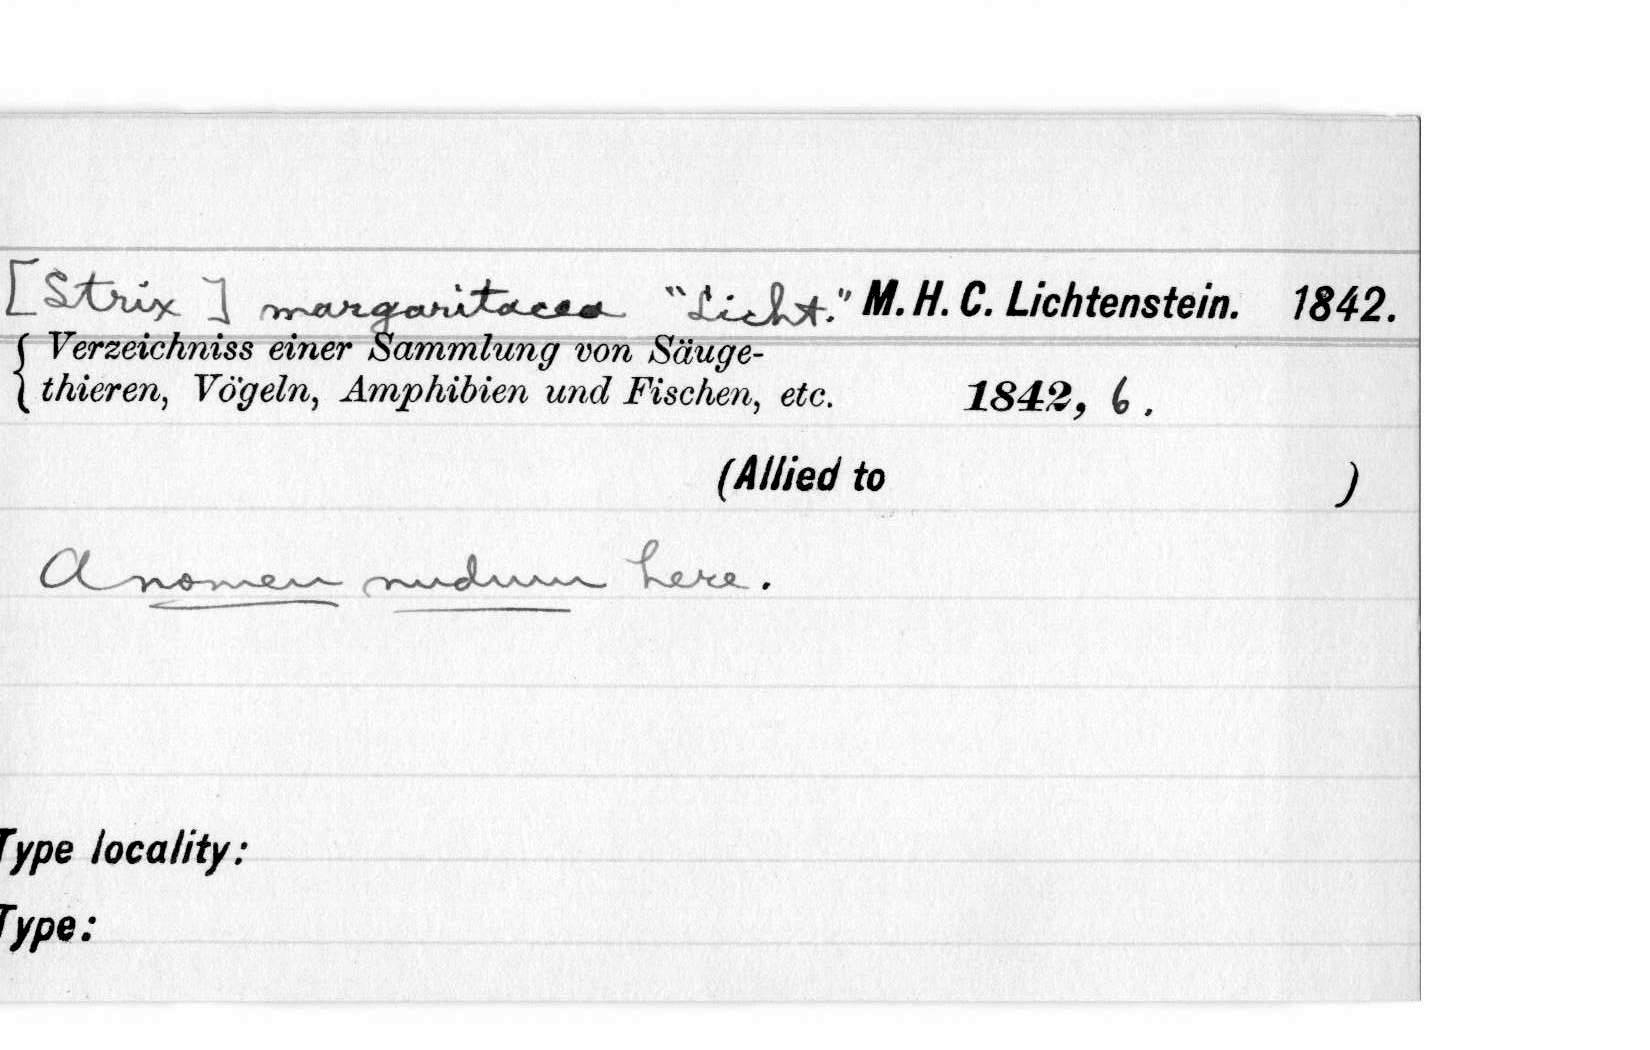 [Strix] margaritacea "Licht." M. H. C. Lichtenstein. 1842.
Verzeichniss einer Sammlung von Säuge-
thieren, Vögeln, Amphibien und Fischen, etc. 1842, 6.
(Allied to )
A nomen nudum here.
Type locality:
Type: